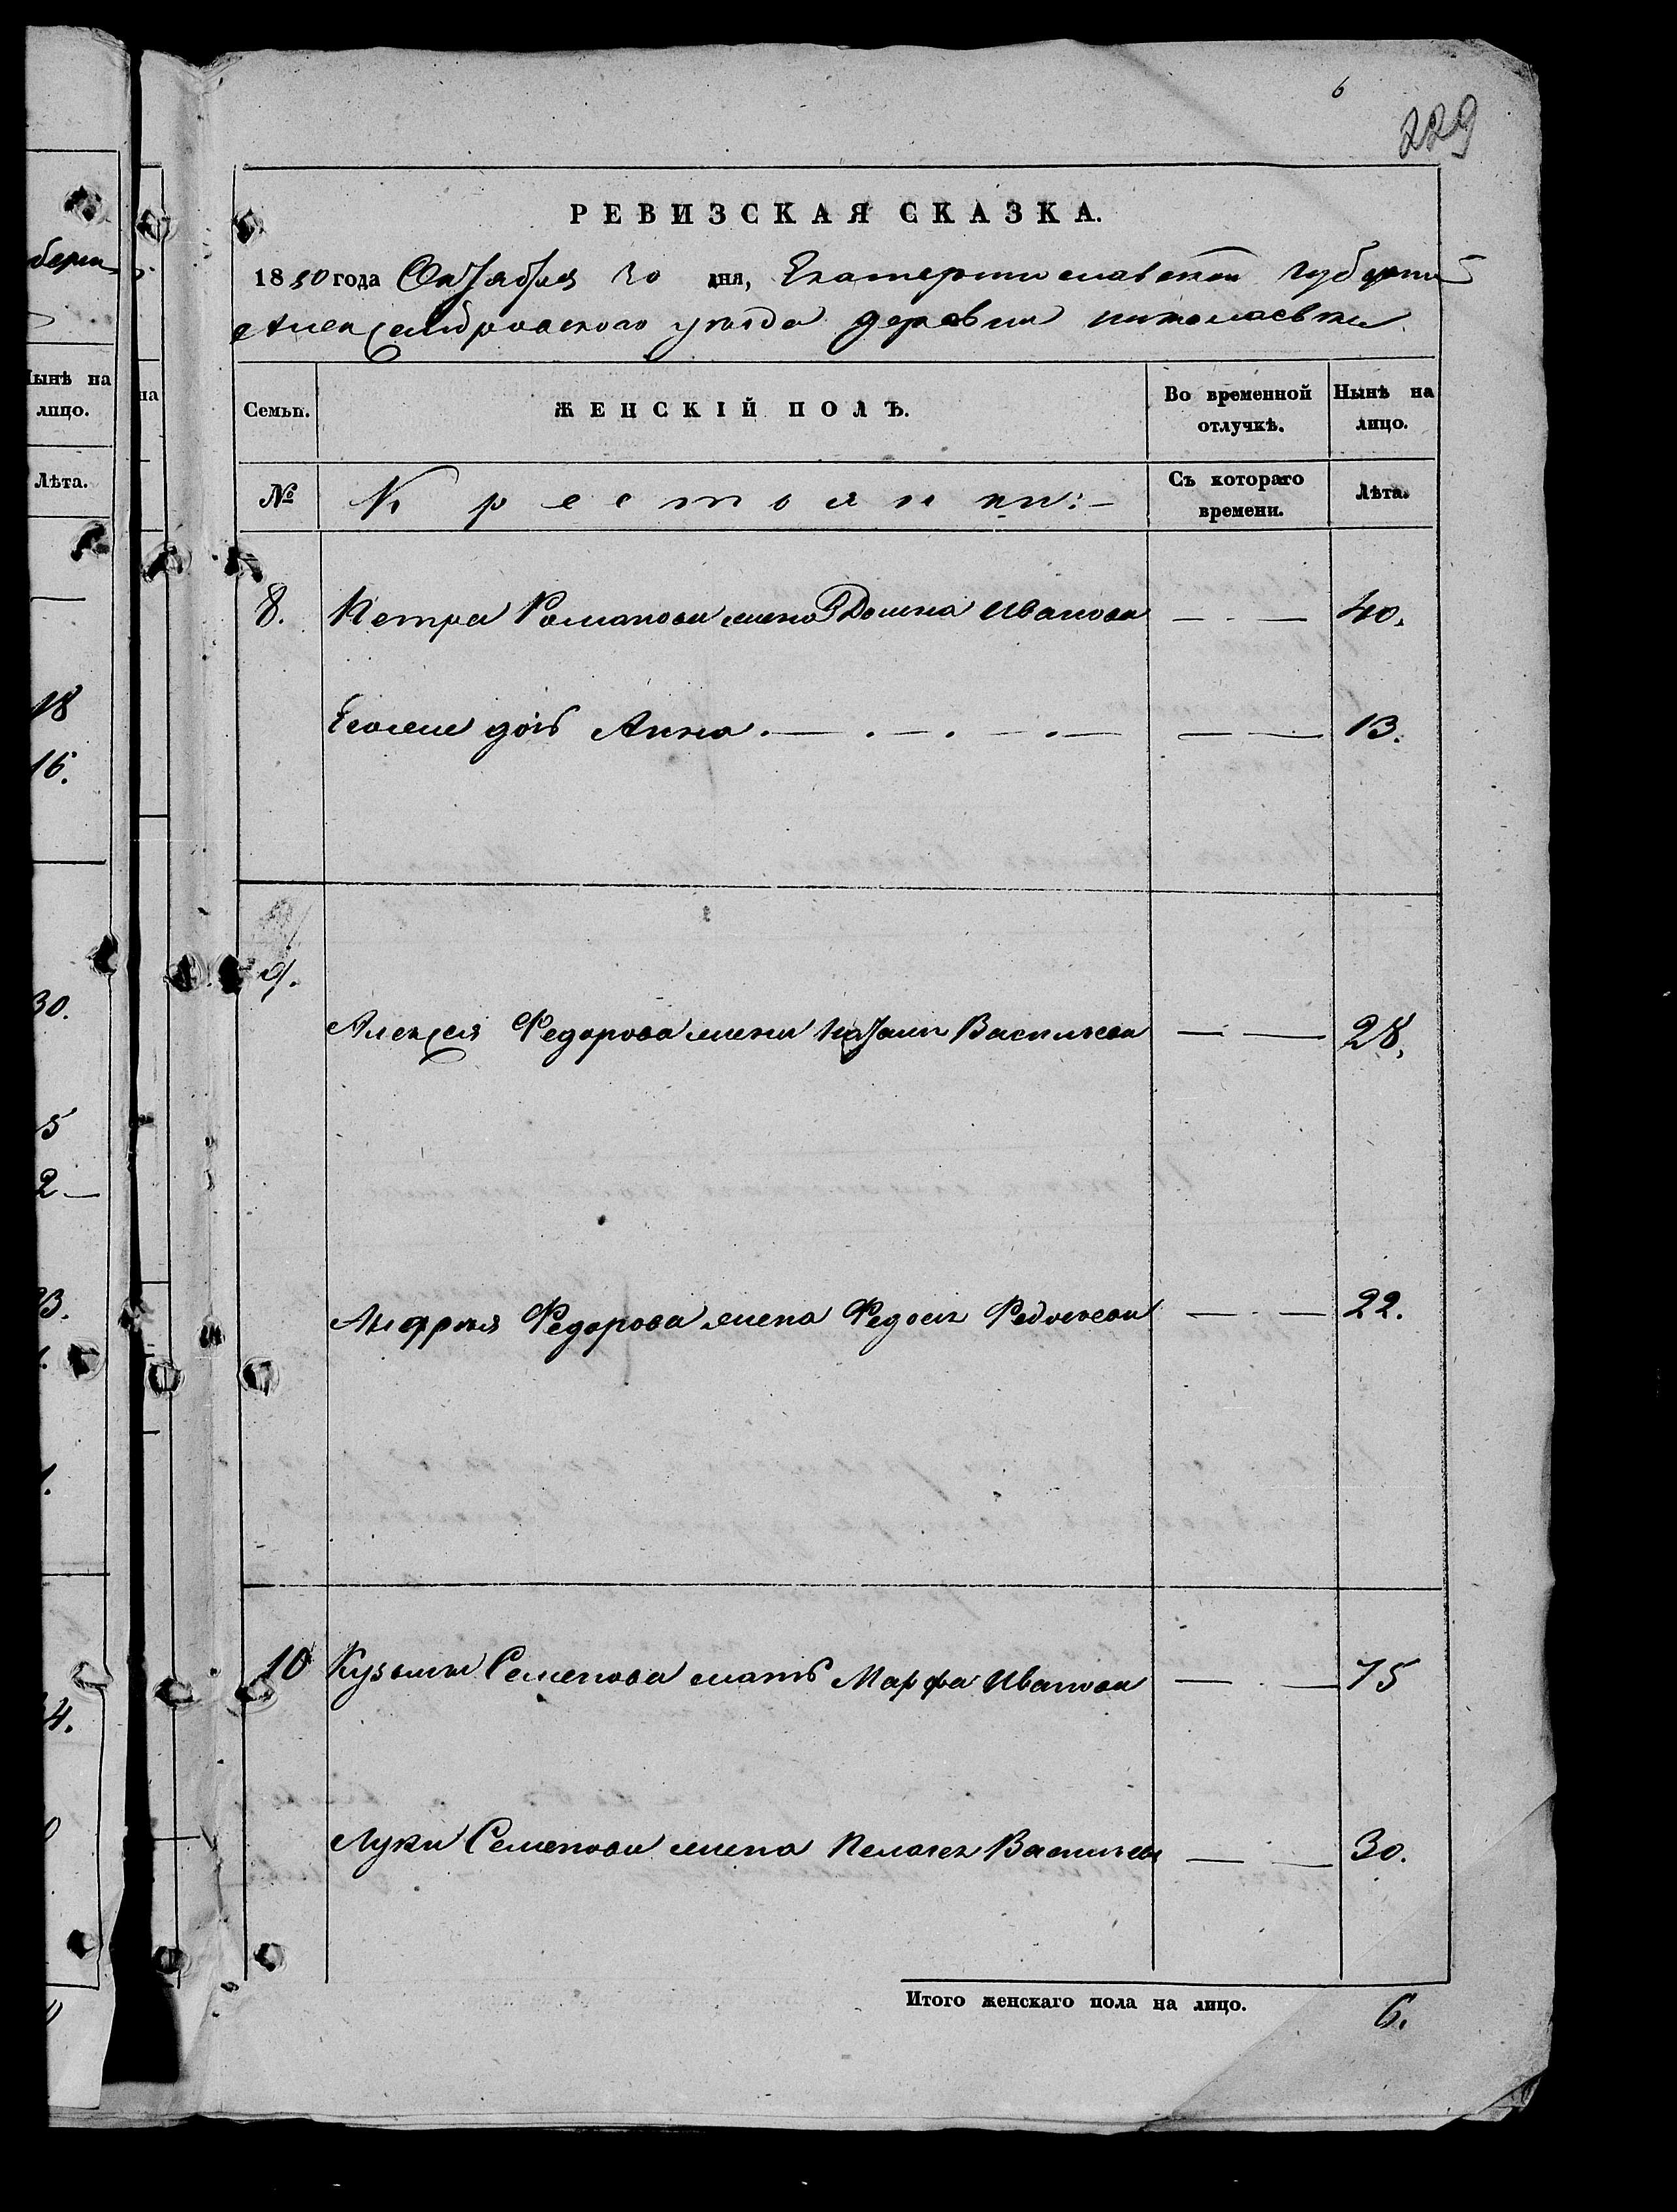 6
229
РЕВИЗСКАЯ СКАЗКА.
1850 года Октября 30 дня, Екатеринославской Губернии
Александровского уезда деревни николаевки
Семьи. ЖЕНСКІЙ ПОЛЪ. Во временной отлучкѣ. Нынѣ на лицо.
№ Крестьянки:- Съ котораго времени. Лѣта.
8. Петра Романова жена Домна Иванова — . — 40.
Еголет доч Анна . — . — . — . — — — 13.
9.
Алексея Федорова жена Наталия Васильева — — 28.
Федорова жена Федосия — . — 22.
10 Кузьмы Семенова мать Марфа Иванова — . — 75
Луки Семенова жена Пелагея Васильева — — 30.
Итого женскаго пола на лицо. 6.
берни
Нынѣ на
лицо.
Лѣта.
18
16.
30.
5
2 —
на